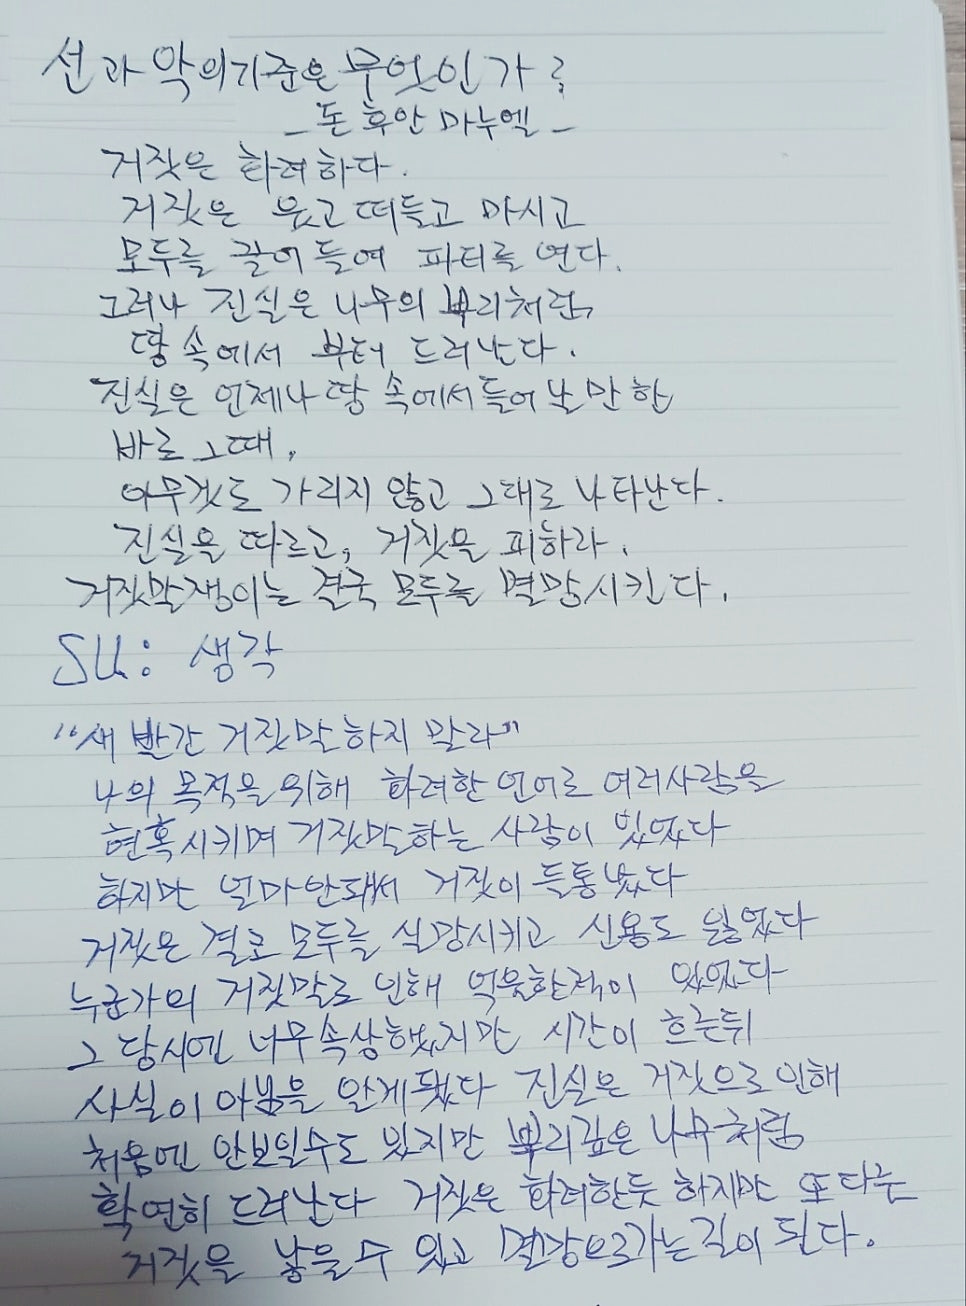 선과 악의기준은 무엇인가?
- 돈 후안 마누엘 -
거짓은 화려하다.
거짓은 웃고 떠들고 마시고
모두를 끌어 들여 파티를 연다.
그러나 진실은 나무의 뿌리처럼,
땅 속에서 부터 드러난다.
진실은 언제나 땅 속에서 들어 날 만 한
바로 그때,
아무것도 가리지 않고 그대로 나타난다.
진실을 따르고, 거짓을 피하라.
거짓말쟁이는 결국 모두를 멸망시킨다.
SU: 생각
"새 빨간 거짓말하지 말라"
나의 목적을 위해 화려한 언어로 여러사람을
현혹시키며 거짓말하는 사람이 있었다
하지만 얼마안돼서 거짓이 들통났다
거짓은 결코 모두를 실망시키고 신용도 잃었다
누군가의 거짓말로 인해 억울한적이 있었다
그 당시엔 너무속상했지만 시간이 흐른뒤
사실이 아님을 알게됐다 진실은 거짓으로 인해
처음엔 안보일수도 있지만 뿌리깊은 나무처럼
확연히 드러난다 거짓은 화려한듯 하지만 또다른
거짓을 낳을 수 있고 멸망으로가는길이 된다.